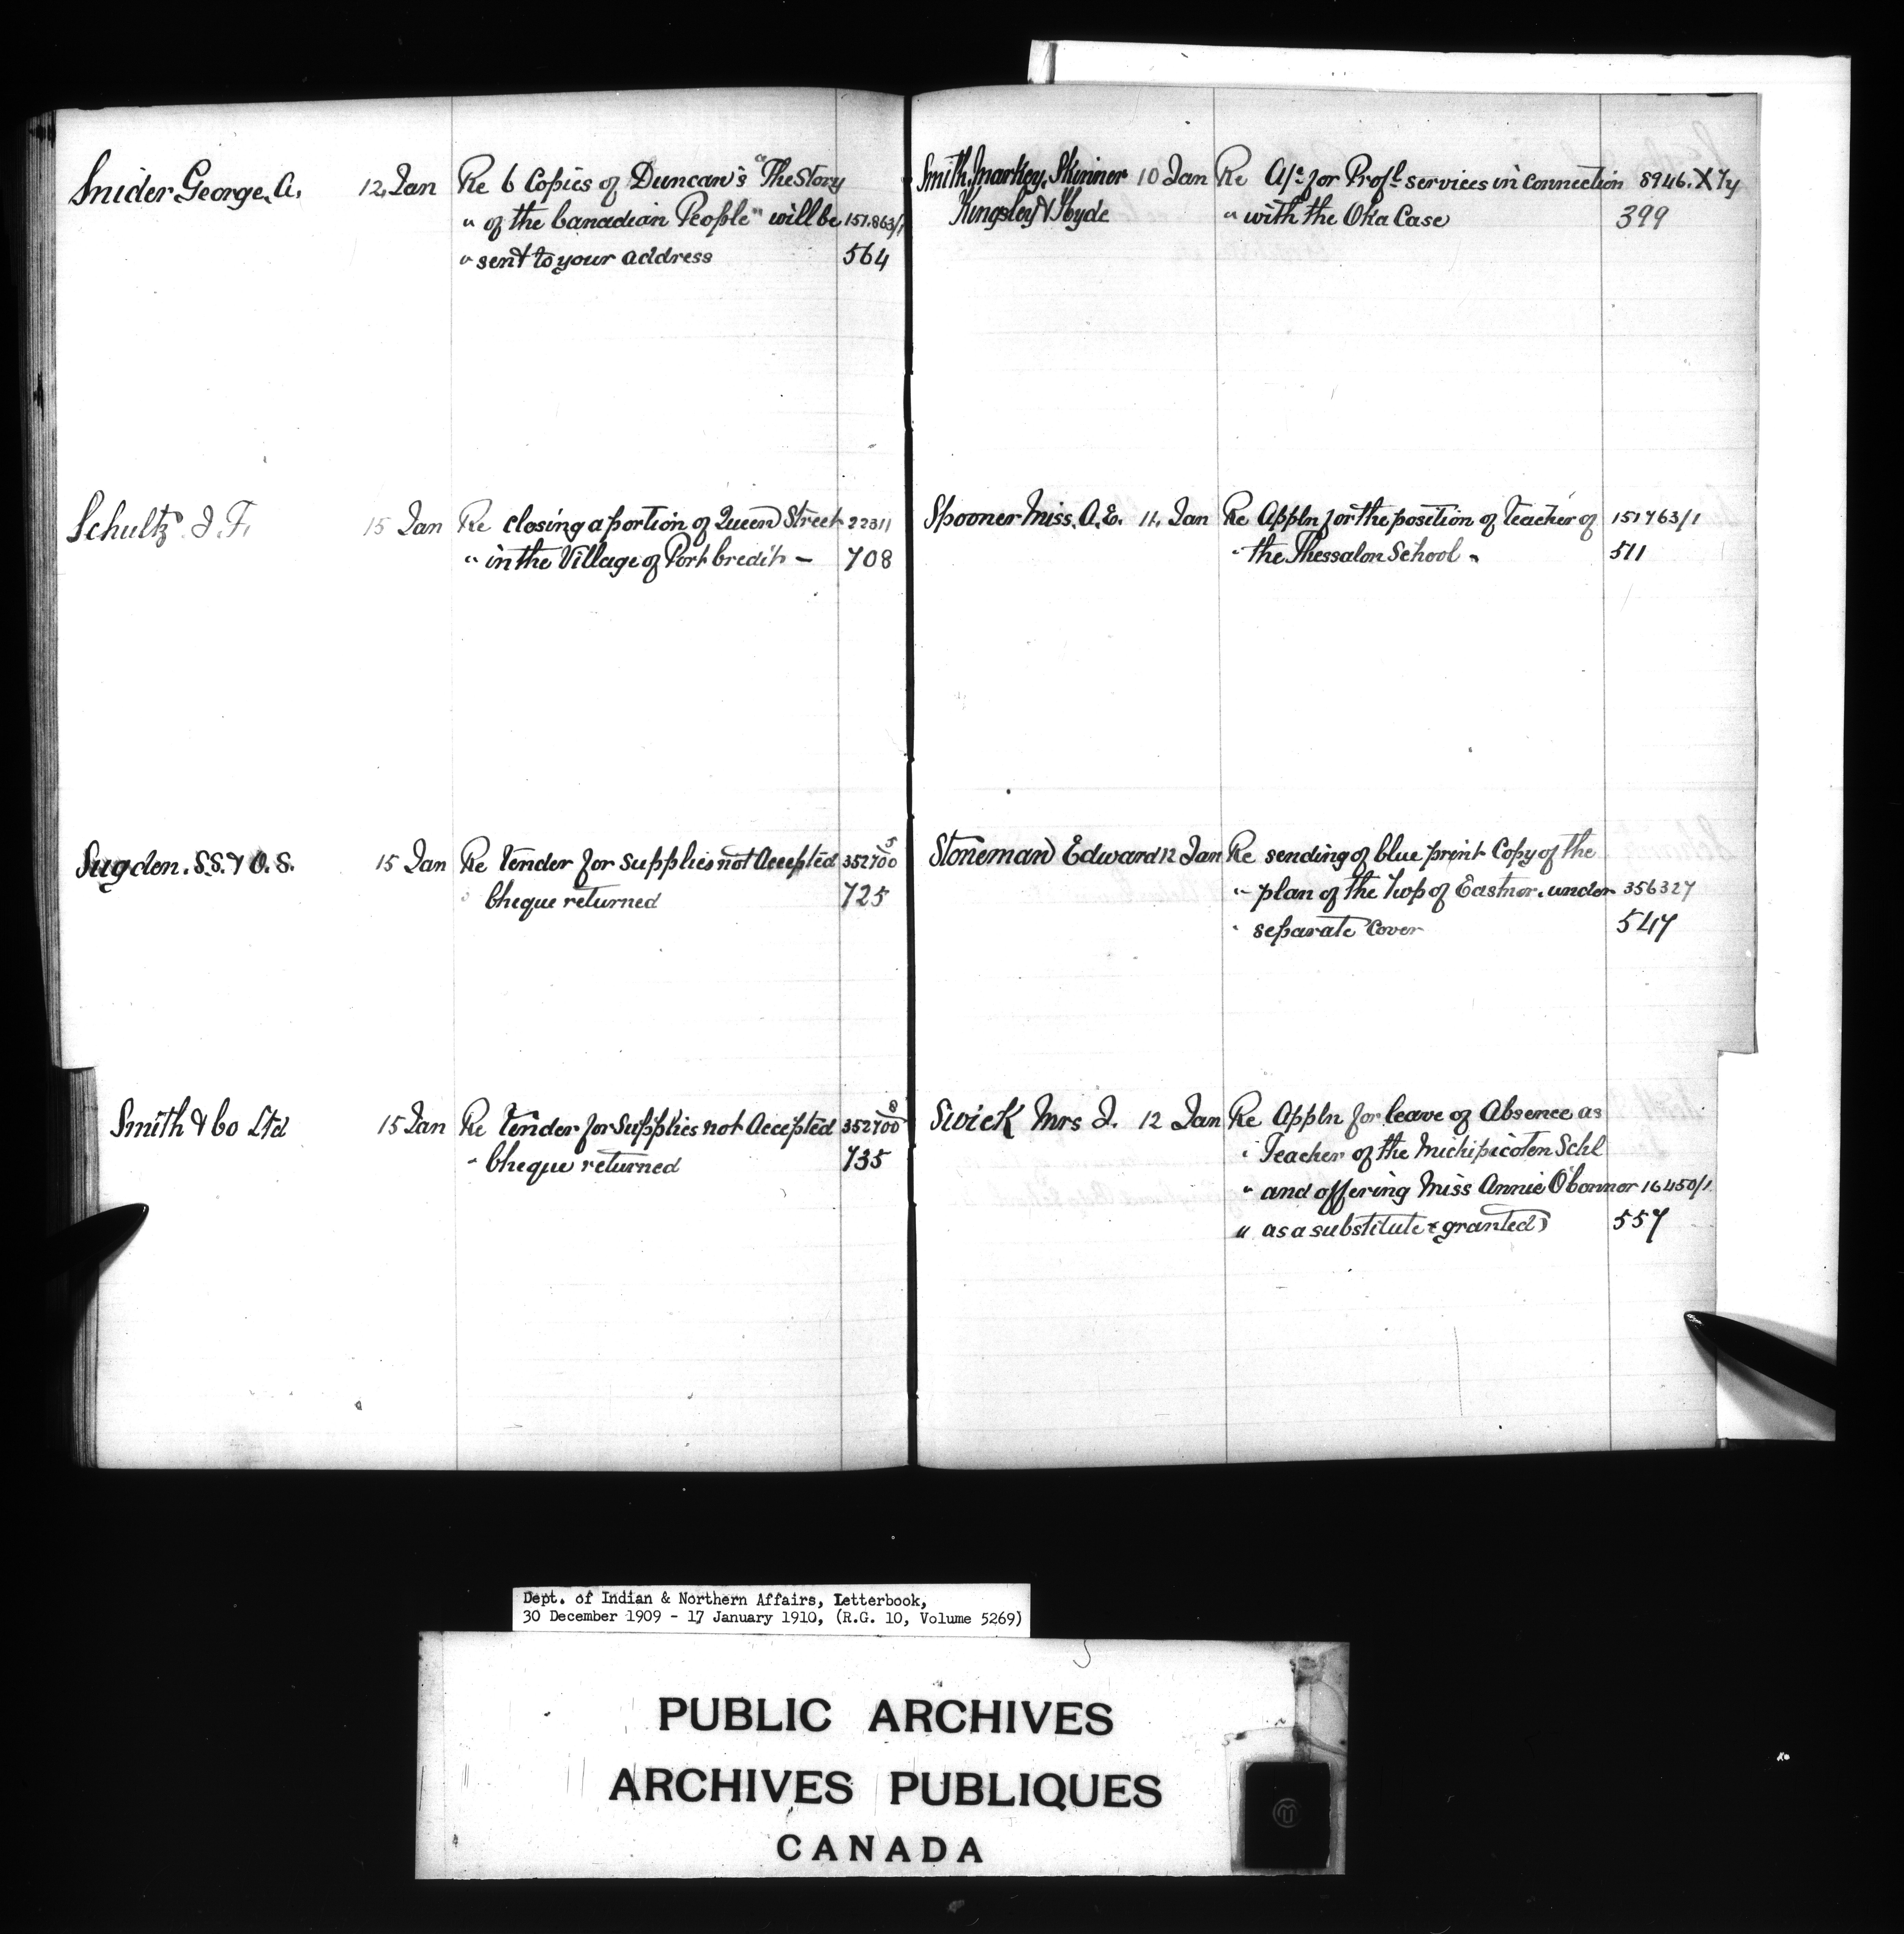 Snider George. A. 12, Jan Re 6 Copies of Duncan's "The Story
" of the Canadian People" will be 151.863/1
" sent to your address 564
Schultz J. F. 15 Jan Re closing a portion of Queen Street 22311
" in the Village of Port Credit - 708
Sugden. S.S. & O.S. 15 Jan Re Tender for supplies not Accepted 352700 5
" Cheque returned 725
Smith & Co Ltd 15 Jan Re Tender for Supplies not Accepted 352700 8
" Cheque returned 735
Smith, Markey, Skinner 10 Jan Re A/c for Profl services in Connection 8946. X 7y
Kingsley & Hyde " with the Oka Case 399
Spooner Miss. A.E. 11, Jan Re Appln for the position of Teacher of 151763/1
" the Thessalon School " 511
Stoneman Edward 12 Jan Re sending of blue print Copy of the
" plan of the Twp of Eastnor. under 356327
" separate Cover 547
Swick Mrs J. 12 Jan Re Appln for leave of Absence as
" Teacher of the Michipicoten Schl
" and offering Miss Annie O'Connor 16450/1
" as a substitute (granted) 557
Dept. of Indian & Northern Affairs, Letterbook,
30 December 1909 - 17 January 1910, (R.G. 10, Volume 5269)
PUBLIC ARCHIVES
ARCHIVES PUBLIQUES
CANADA